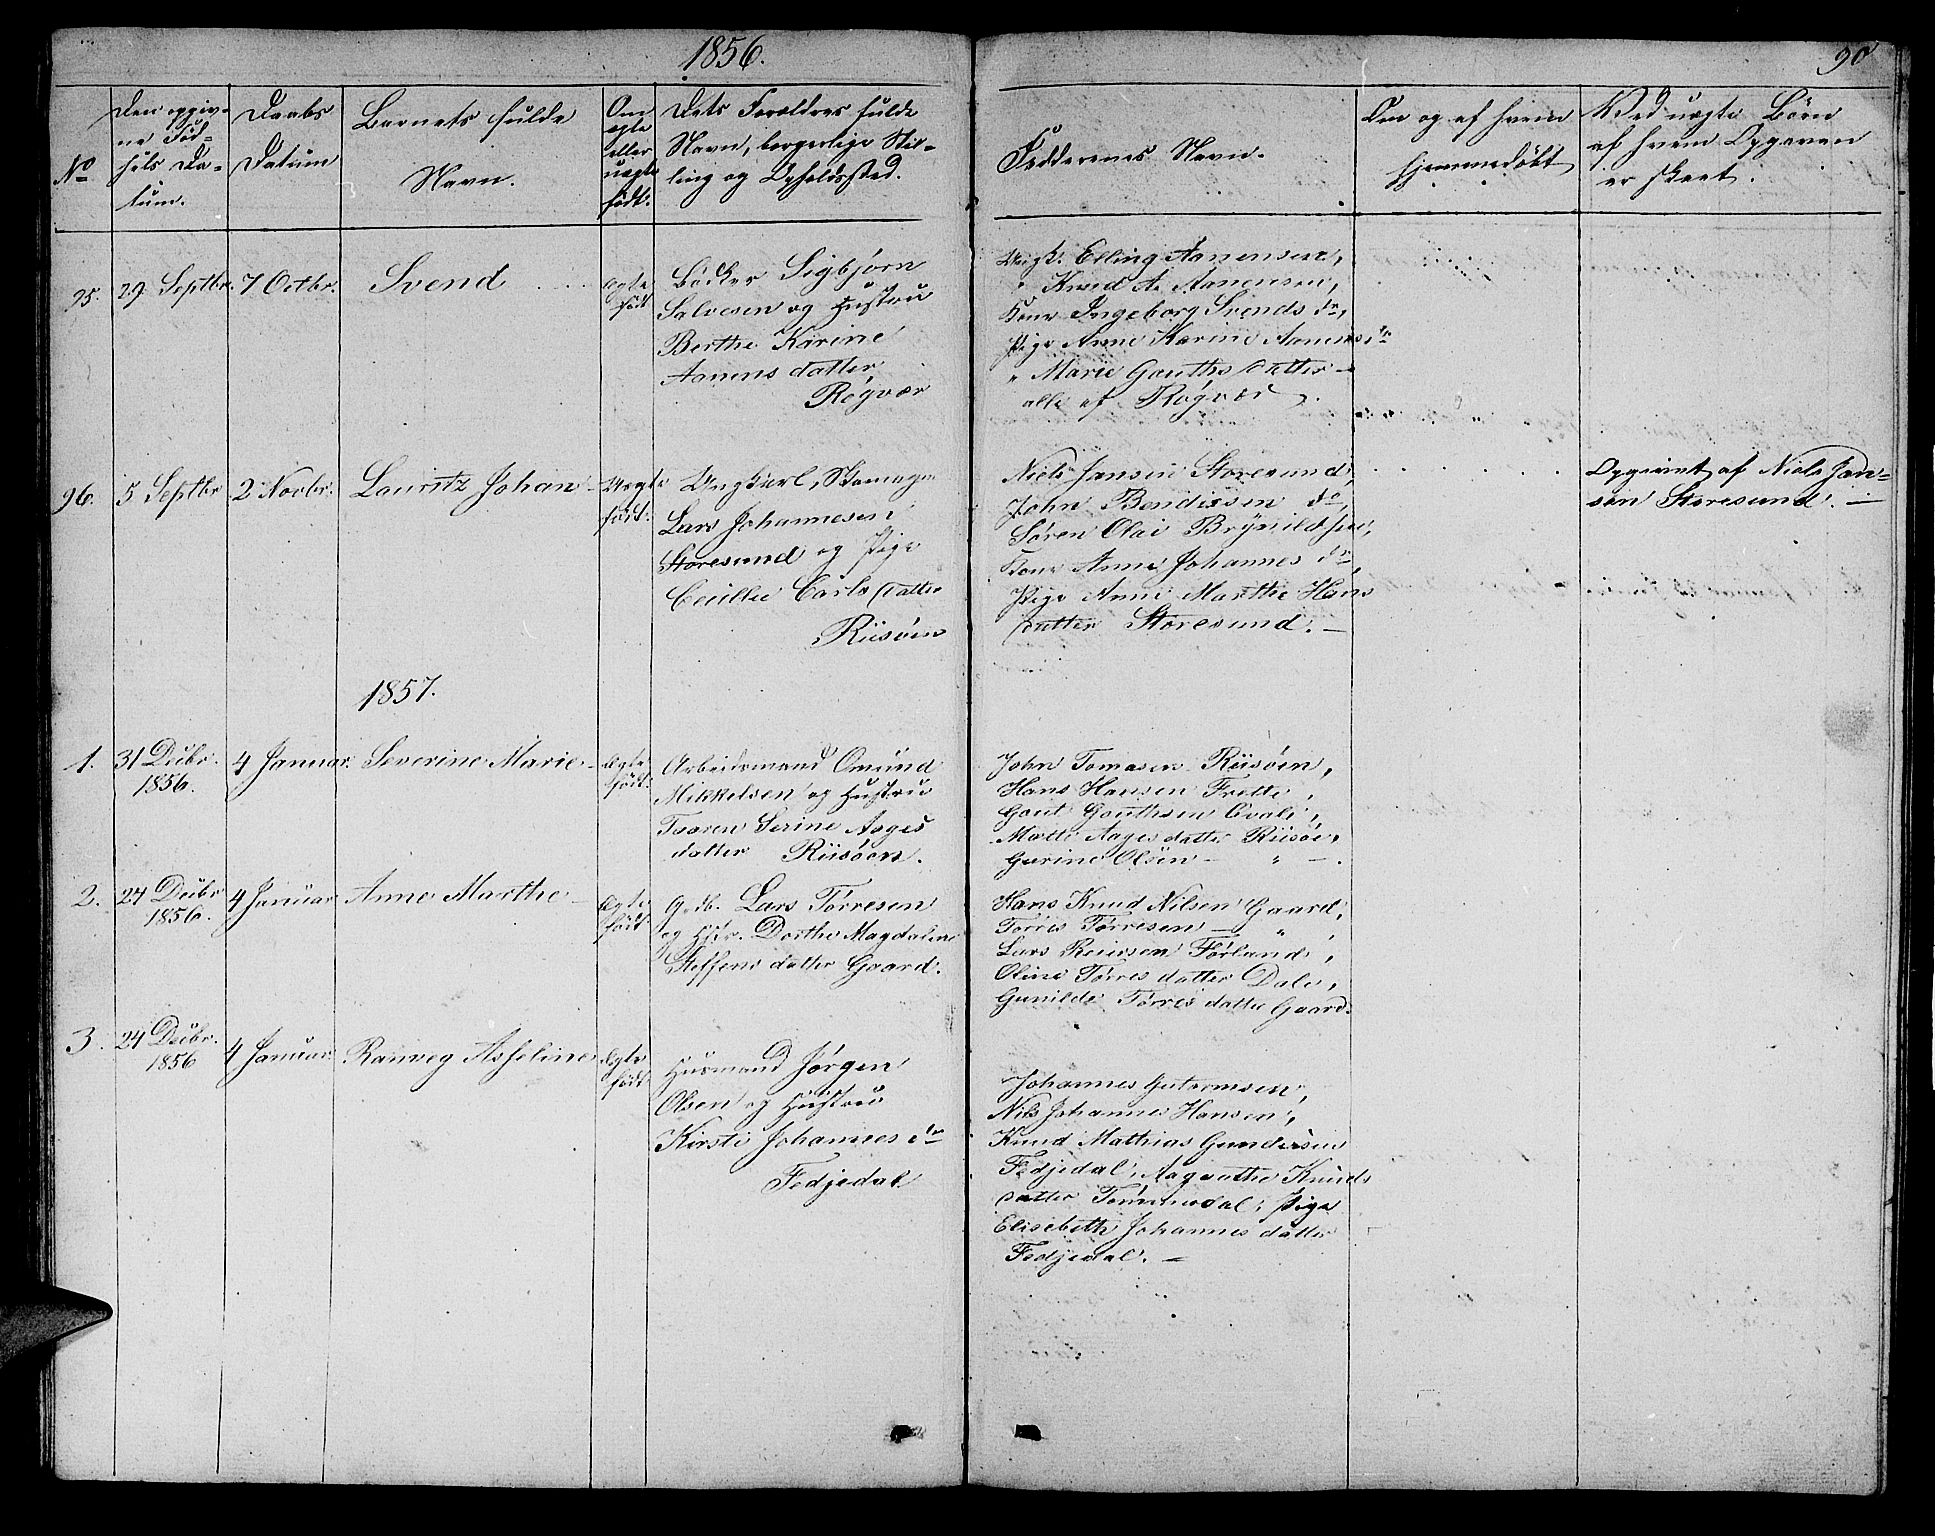 1856.
90
No
Den opgiv-
ne Fød-
sels Da-
tum.
Daabs
Datum
Barnets fulde
Navn.
Om
ægte
eller
uægte
født.
Dets Forældres fulde
Navn, borgerlige Stil-
ling og Opholdssted.
Faddernes Navn.
Om og af hvem
hjemmedøbt
Ved uægte Børn
af hvem Opgaven
er skeet.
95.
29 Septbr.
7 Octbr.
Svend
Ægte
født
Bødker Sigbjørn
Salvesen og Hustru
Berthe Karine
Aanens datter
Røgvær
Elling Aanensen,
" Knud A. Aanensen,
Kone Ingeborg Svends dr,
Pige Anne Karine Aanens dr
" Marie Gauthsdatter -
alle af Røgvær.
96.
5 Septbr
2 Novbr.
Lauritz Johan
Uægte
født.
Ungkarl, Skomager
Lars Johannesen
Storesund og Pige
Cecillie Carls datter
Riisøen
Niels Jansen Storesund,
John Bendixen do,
Søren Olai Brynildsen,
Kone Anne Johannes dr,
Pige Anne Marthe Hans
datter Storesund. -
Opgivet af Niels Jan-
sen Storesund. -
1857.
1.
31 Decbr.
1856.
4 Januar.
Severine Marie
Ægte
født.
Arbeidsmand Omund
Mikkelsen og Hustru
Taaren Serine Aages
datter Riisøen.
John Tomasen Riisøen,
Hans Hansen Frette,
Gaut Gauthsen Evale,
Mallie Aages datter Riisøe,
Gurine Olsen - " -.
2.
27 Decbr
1856.
4 Januar
Anne Marthe
Ægte
født
Gdb. Lars Tørresen
og Hstr. Dorthe Magdalene
Steffens datter Gaard.
Hans Knud Nilsen Gaard,
Torris Tørresen - " ,
Lars Reiersen Førland,
Oline Tørres datter Dale,
Gunilde Tørris datter Gaard.
3.
24 Decbr.
1856
4 Januar
Ranveg Asseline
Ægte
født.
Husmand Jørgen
Olsen og Hustru
Kirsti Johannes dr
Fedjedal
Johannes Gutormsen,
Nils Johannes Hansen,
Knud Mathias Gundersen
Fedjedal, Aagaathe Knuds
datter Tømmerdal, Pige
Elisebeth Johannes datter
Fedjedal. -